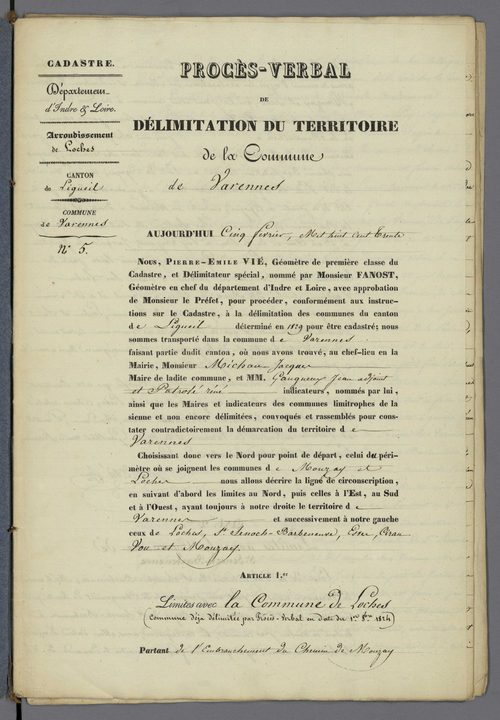 CADASTRE.
Département
d'Indre & Loire.
Arrondissement
de Loches
CANTON
de Ligueil
COMMUNE
de Varennes
n° 5.
PROCÈS-VERBAL
DE
DÉLIMITATION DU TERRITOIRE
de la Commune
de Varennes
AUJOURD'HUI Cinq février, Mil huit cent trente
NOUS, PIERRE-EMILE VIÉ, Géomètre de première classe du
Cadastre, et Délimitateur spécial, nommé par Monsieur FANOST,
Géomètre en chef du département d'Indre et Loire, avec approbation
de Monsieur le Préfet, pour procéder, conformément aux instruc-
tions sur le Cadastre, à la délimitation des communes du canton
de Ligueil déterminé en 1829 pour être cadastré; nous
sommes transporté dans la commune de Varennes
faisant partie dudit canton, où nous avons trouvé, au chef-lieu en la
Mairie, Monsieur Michau Jacques
Maire de ladite commune, et MM. Jean adjoint
et rené indicateurs, nommés par lui,
ainsi que les Maires et indicateurs des communes limitrophes de la
sienne et non encore délimitées, convoqués et rassemblés pour cons-
tater contradictoirement la démarcation du territoire de
Varennes
Choisissant donc vers le Nord pour point de départ, celui du péri-
mètre où se joignent les communes de Mouzay et
Loches nous allons décrire la ligne de circonscription,
en suivant d'abord les limites au Nord, puis celles à l'Est, au Sud
et à l'Ouest, ayant toujours à notre droite le territoire de
Varennes et successivement à notre gauche
ceux de Loches, St. Senoch-Barbeneuve, Esve, Ciran
Vou et Mouzay.
ARTICLE 1.er
Limites avec la Commune de Loches
(Commune déjà délimitée par Procès-Verbal en date du 1824
Partant de l'Embranchement du Chemin de Mouzay